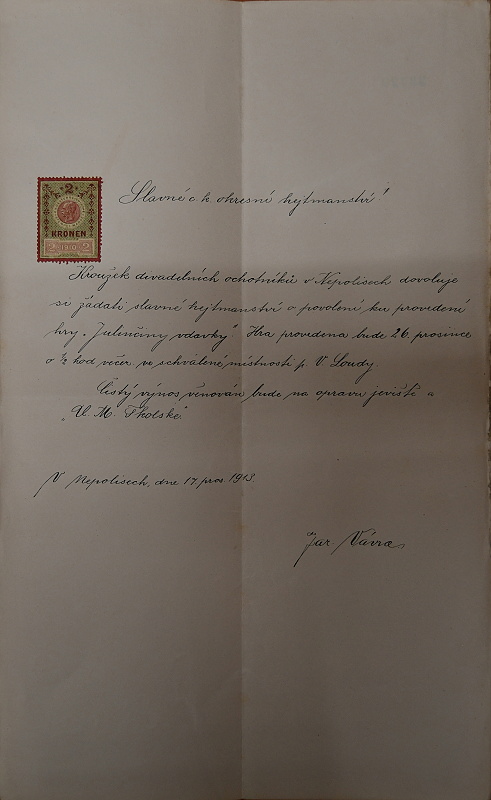 2
KRONEN
2 1910 2
Slavné c. k. okresné hejtmanství!
Kroužek divadelních ochotníků v Nepolisech dovoluje
si žádati slavné hejtmanství o povolení ku provedení
hry „Julinčiny vdavky“. Hra provedena bude 26. prosince
o ½ hod večer ve schválené místnosti p. V. Loudy.
Čistý výnos věnován bude na opravu jeviště a
„Ú. M. Školské“.
V Nepolisech, dne 17 pros. 1913.
Jar. Vávra